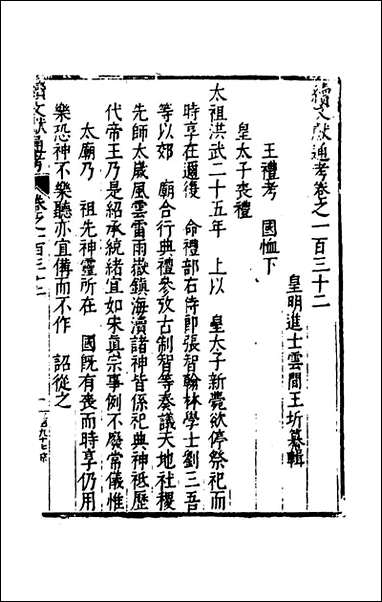 續文獻通考卷之一百三十二
皇明進士雲間王圻纂輯
王禮考　國恤下
皇太子喪禮
太祖洪武二十五年　上以　皇太子新薨欲停祭祀而
時享在邇復　命禮部右侍郎張智翰林學士劉三吾
等以郊　廟合行典禮參攷古制智等奏議天地社稷
先師太歲風雲雷雨嶽鎮海瀆諸神皆係祀典神祗歷
代帝王乃是紹承統緒宜如宋真宗事例不廢常儀惟
太廟乃　祖先神靈所在　國既有喪而時享仍用
樂恐神不樂聽亦宜備而不作　詔從之
續文獻通考　卷之一百三十二　一